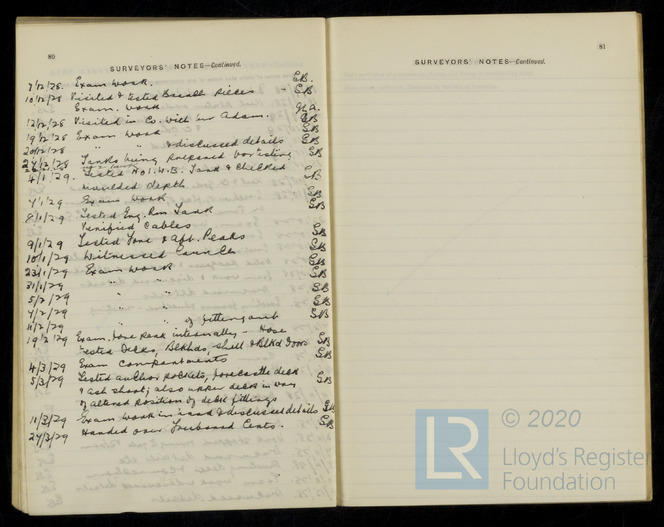 80
SURVEYORS' NOTES—Continued.
7/12/28 Exam work. GB.
10/12/28 Visited & tested Pieces - GB
Exam. work
12/12/28 Visited in Co. with Mr Adam. GB
19/12/28 Exam work GB
20/12/28 " " & discussed details GB
Tanks being prepared for testing GB
4/1/29. Tested No1. W.B. Tank & checked GB
moulded depth
7/1/29 Exam work GB
8/1/29 Tested Eng. Rm Tank GB
Verified Cables
9/1/29 Tested Fore & Aft. Peaks GB
10/1/29 Witnessed GB
23/1/29 Exam work GB
31/1/29 " " GB
5/2/29 " " GB
7/2/29 " " GB
11/2/29 " " of fitting out GB
19/2/29 Exam. Fore Peak internally - Hose
tested Decks, Blkhds, shell & Blkhd Doors GB
4/3/29 Exam compartments GB
5/3/29 Tested anchor pockets, forecastle deck
& ash shoot; also upper deck in way GB
of altered position of deck fittings
11/3/29 Exam work in hand & discussed details GB
27/3/29 Handed over Freeboard Certs. GB
81
SURVEYORS' NOTES—Continued.
© 2020
LR
Lloyd's Register
Foundation